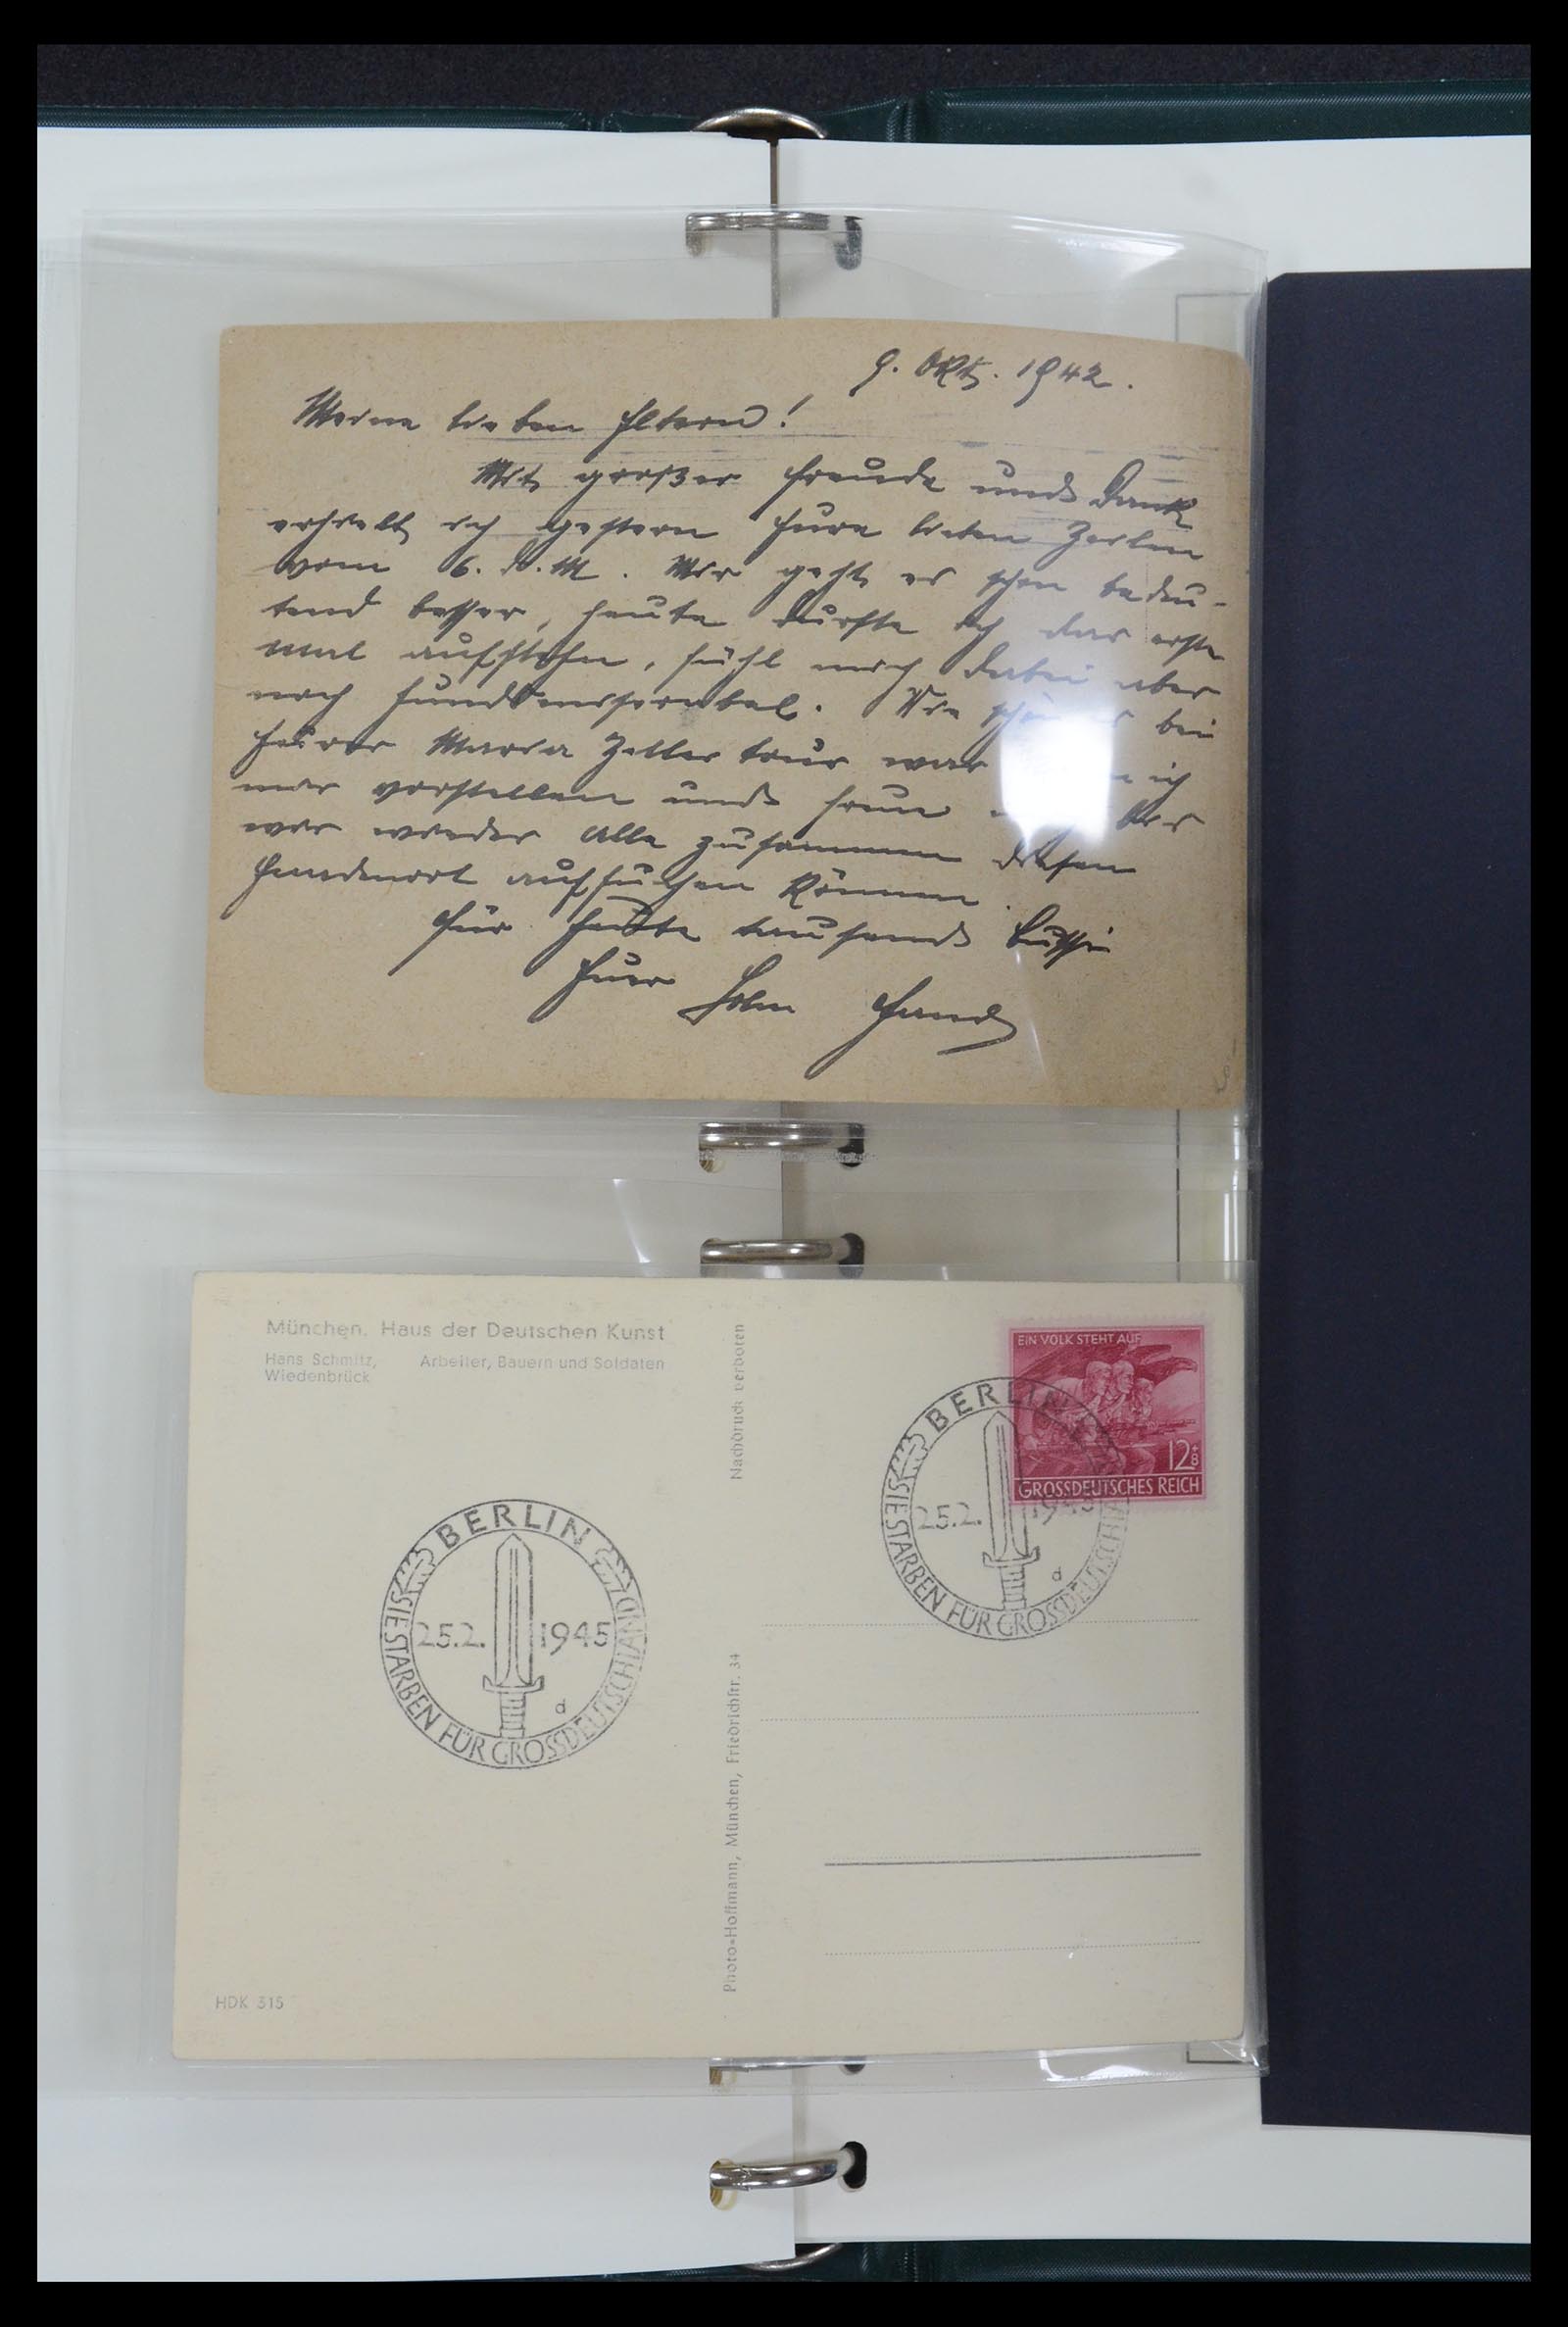 9. Okt. 1942.
Meine lieben Eltern!
Mit großer Freude und Dank
erhielt ich gestern Eure lieben Zeilen
vom 6. d. M. Mir geht es schon bedeu-
tend besser, heute durfte ich das erste
mal aufstehn, fühl mich dabei aber
noch hundsmiserabel. Wie schön es bei
Eurer Maria Zeller tour war ich
mir vorstellen und freue
wir wieder Alle zusammen diesen
aufsuchen können.
Für heute tausend Bussi
Euer Ferd
München, Haus der Deutschen Kunst
Hans Schmitz, Arbeiter, Bauern und Soldaten
Wiedenbrück
Nachdruck verboten
Photo-Hoffmann, München, Friedrichstr. 34
EIN VOLK STEHT AUF
12+8
GROSSDEUTSCHES REICH
BERLIN
25.2. 1945
d
SIE STARBEN FÜR GROSSDEUTSCHLAND
BERLIN
25.2. 1945
d
SIE STARBEN FÜR GROSSDEUTSCHLAND
HDK 315